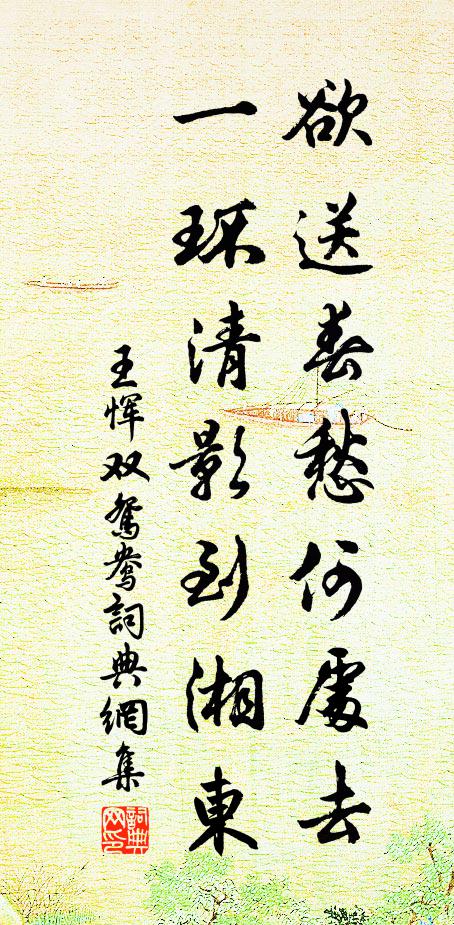 欲送春愁何處去
一環清影到湘東
王惲双鴛鴦詞典網集
詞典
网印